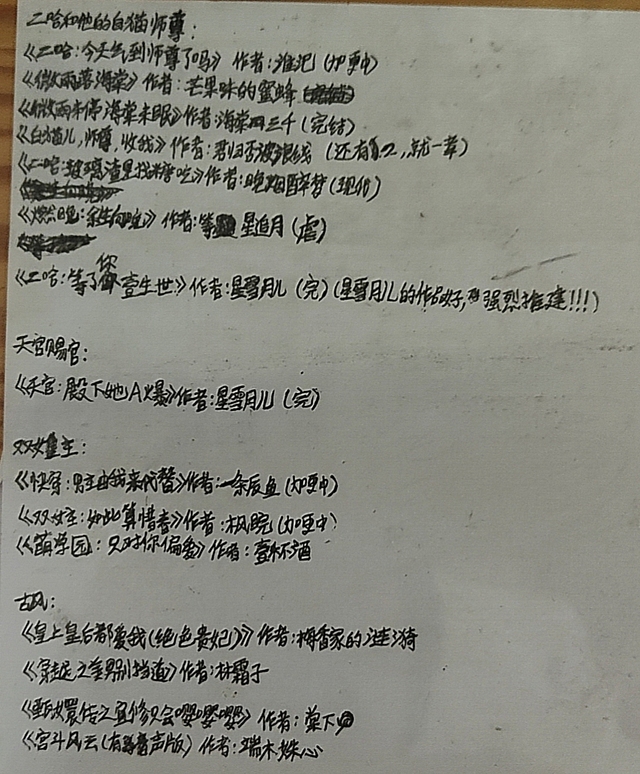 二哈和他的白猫师尊:
《二哈:今天气到师尊了吗》作者:淮汜(加更中)
《微雨落海棠》作者:芒果味的蜜蜂
《微雨未停海棠未眠》作者:海棠三千(完结)
《白猫儿,师尊,收我》作者:君归否波浪线(还有2,就一章)
《二哈:玻璃渣里找糖吃》作者:晚烟醉梦(现代)
《燃晚:余生向晚》作者:等星追月(虐)
《二哈:等了你壹生世》作者:星雪月儿(完)(星雪月儿的作品好,强烈推建!!!)
天官赐官:
《天官:殿下她A爆》作者:星雪月儿(完)
双女主:
《快穿:男主由我来代替》作者:一条辰鱼(加更中)
《双女主:如此算惜春》作者:枫晚(加更中)
《萌学园:只对你偏爱》作者:壹杯酒
古风:
《皇上皇后都爱我(绝色贵妃)》作者:梅香家的涟漪
《穿越之笙男别挡道》作者:林霜子
《甄嬛传之宜修只会嘤嘤嘤》作者:叶下
《宫斗风云(有声版)作者:端木姝心